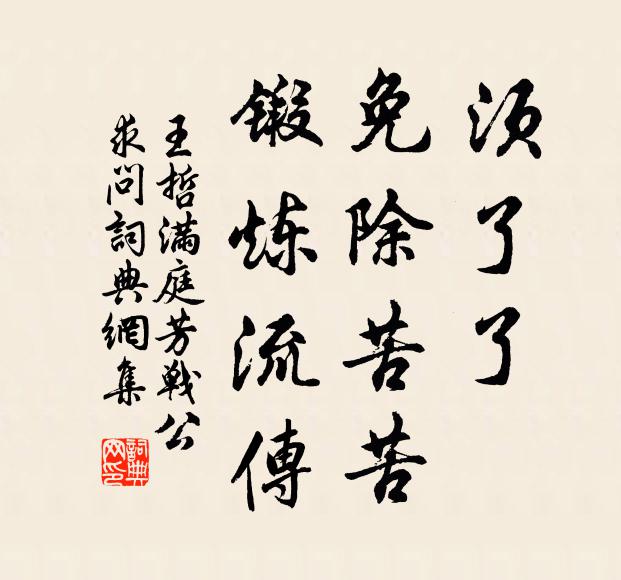 須了了
免除苦苦
鍛炼流傳
王哲滿庭芳戰公
求問詞典網集
詞典
网印